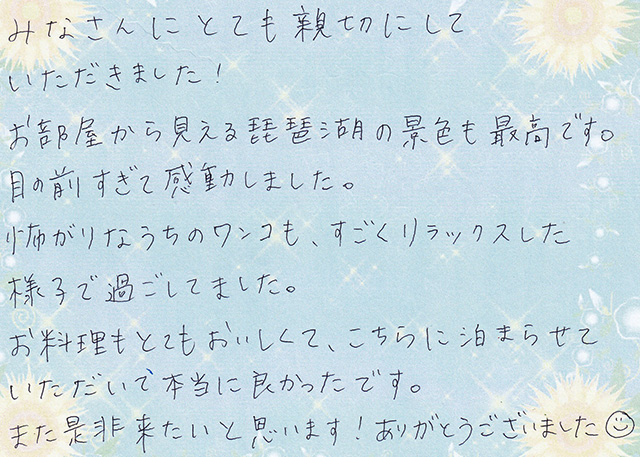 みなさんにとても親切にして
いただきました！
お部屋から見える琵琶湖の景色も最高です。
目の前すぎて感動しました。
怖がりなうちのワンコも、すごくリラックスした
様子で過ごしてました。
お料理もとてもおいしくて、こちらに泊まらせて
いただいで本当に良かったです。
また是非来たいと思います！ありがとうございました☺